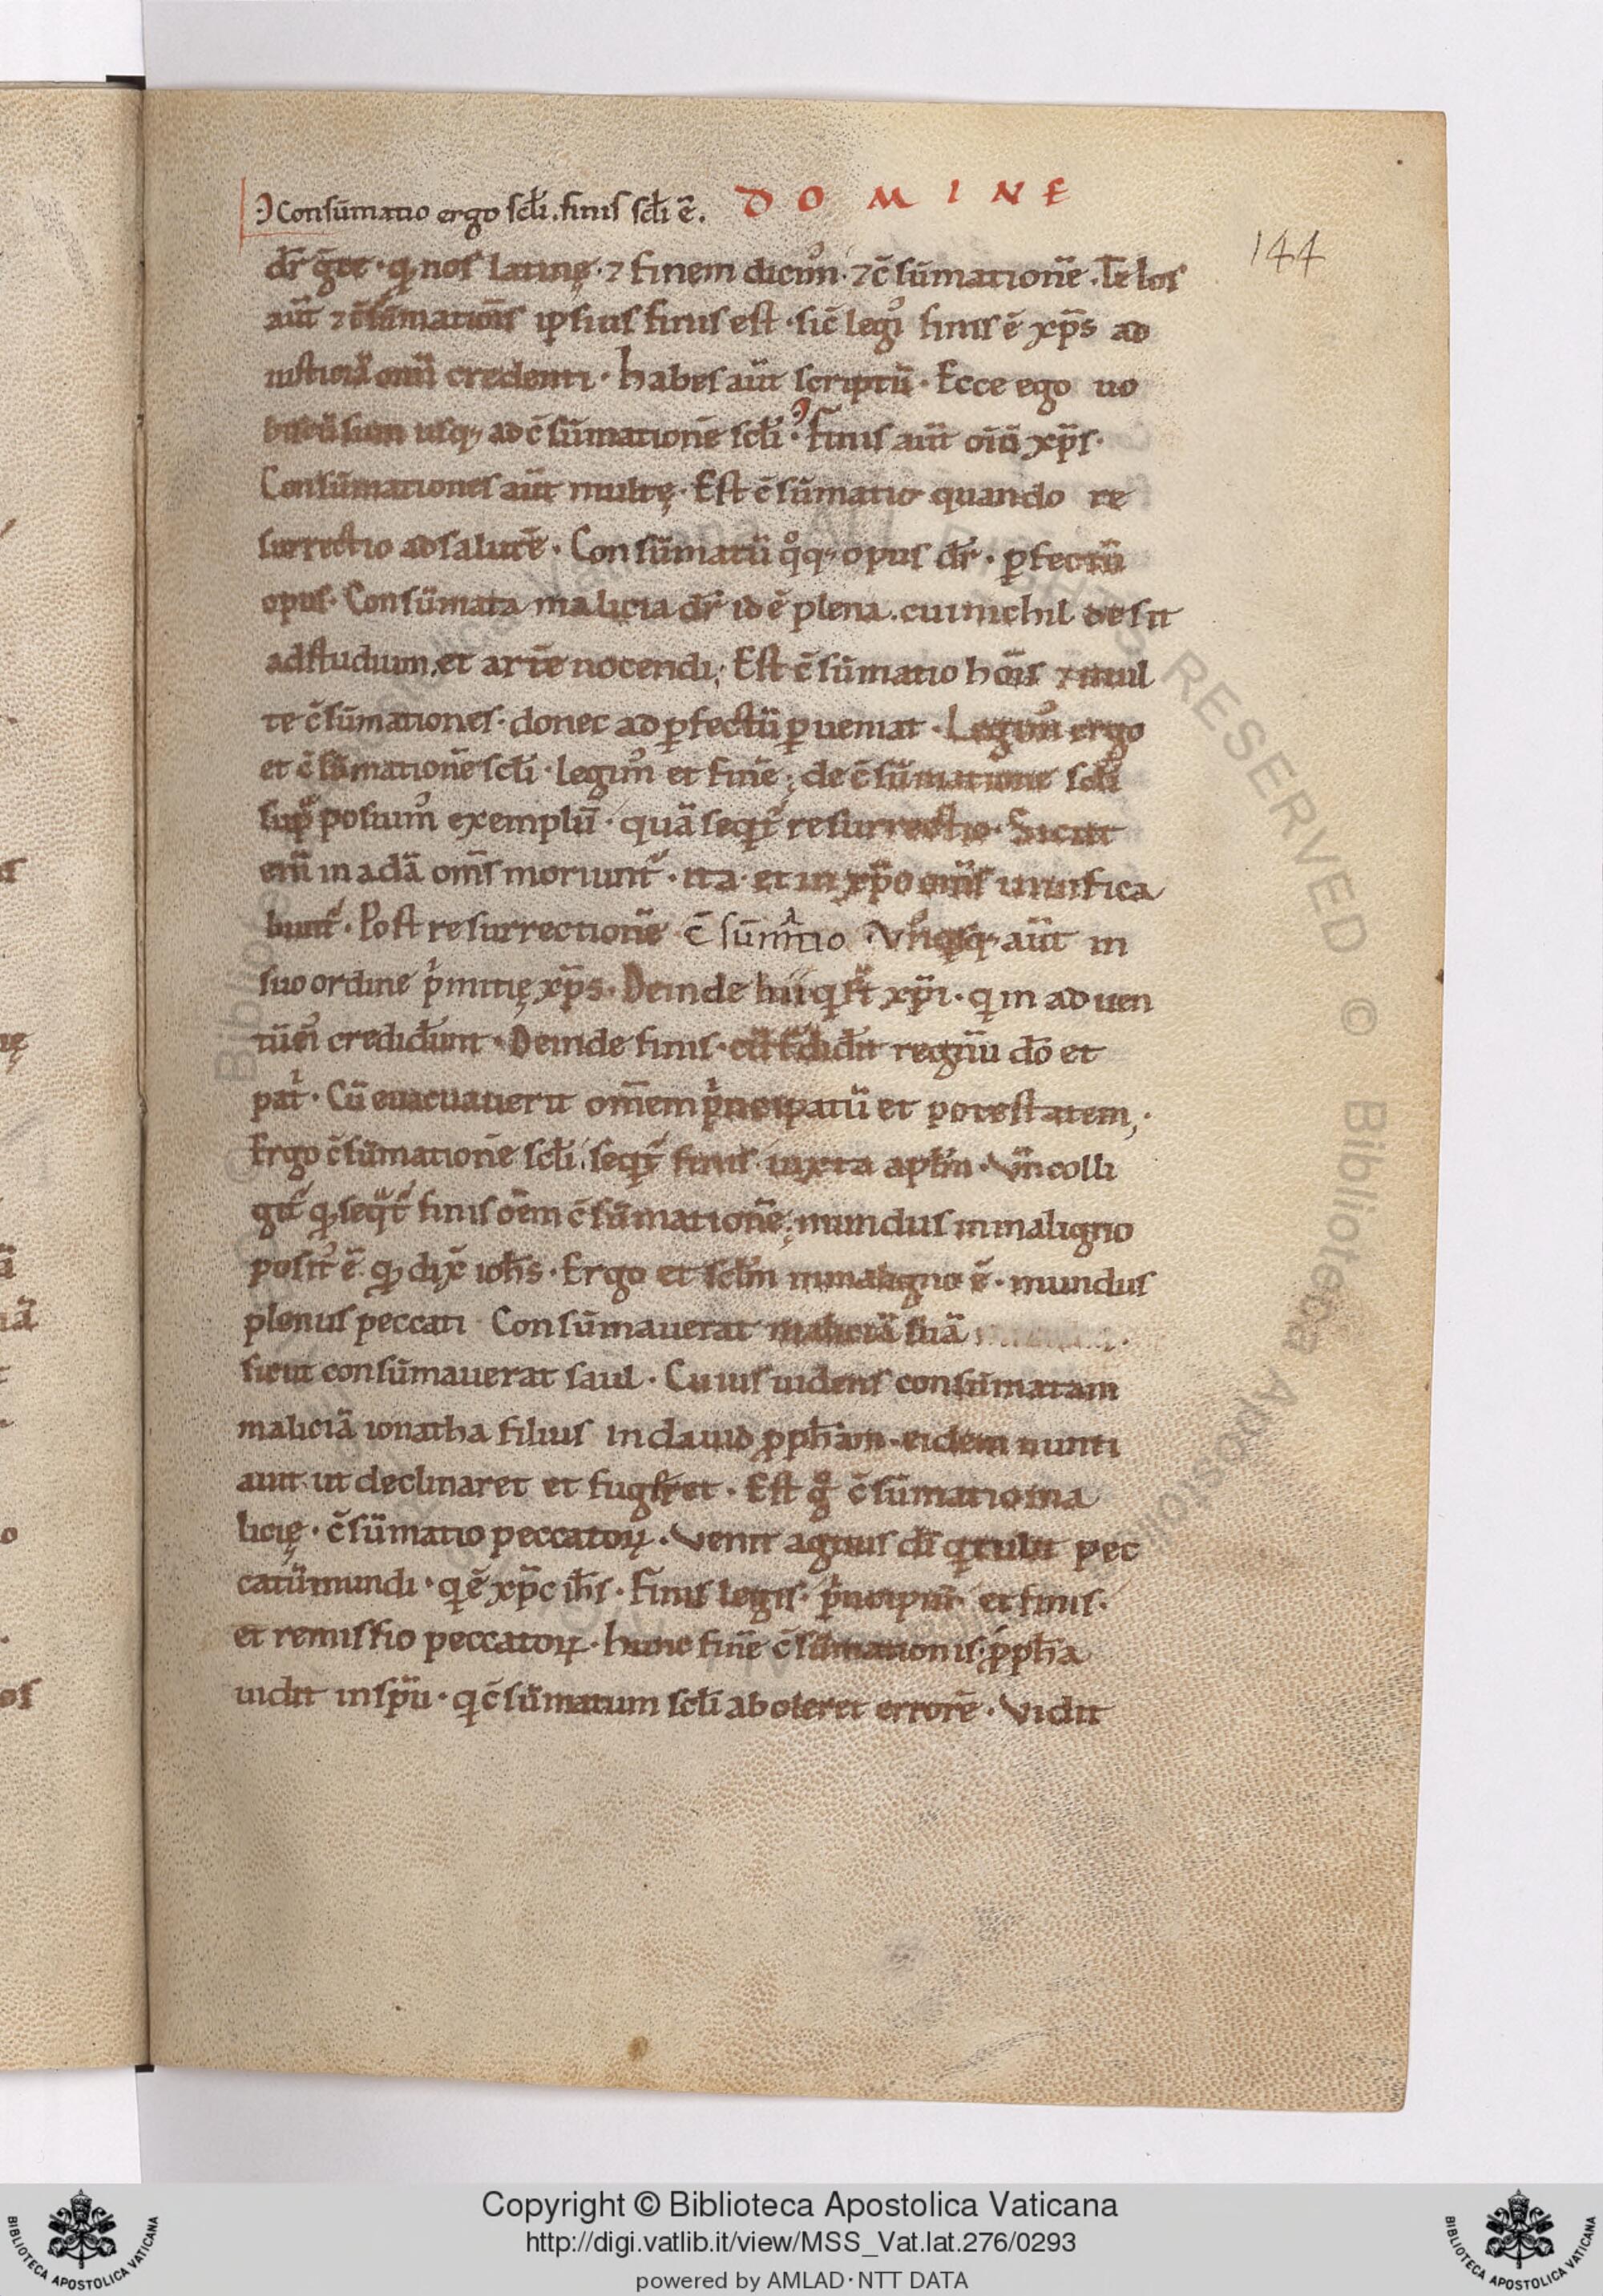 Consũmatio ergo scłi. finis scłi ẽ. DOMINE
144
dr̃ gr̃ce · qđ nos latinę · ⁊ finem dicim᷒ · ⁊ c̃sũmationẽ · Telos
aũt ⁊ c̃sũmationis ipsius finis est · sic̃ legis finis ẽ xp̃s ad
iusticiã om̃i credenti · habes aũt scriptũ · Ecce ego uo
biscũ sum usq; ad c̃sũmationẽ scłi · finis aũt oĩũ xp̃s ·
Consũmationes aũt multę · Est c̃sũmatio quando re
surrectio ad salutẽ · Consũmatũ qͦq; opus dr̃ · ꝑfectũ
opus · Consũmata malicia dr̃ id ẽ plena . cui nichil desit
ad studium . et artẽ nocendi; Est c̃sũmatio hõis ⁊ mul
te c̃sũmationes · donec ad ꝑfectũ ꝑueniat · Legim᷒ ergo
et c̃sũmationẽ scłi · legim᷒ et finẽ; de c̃sũmatione scłi
supᷓ posuim᷒ exemplũ · quã seqt᷑ resurrectio · Sicut
em̃ in adã om̃s moriunt᷑ · ita et in xp̃o om̃s uiuifica
bunt᷑ · Post resurrectionẽ c̃sũmatio Vn᷒qͥsq; aũt in
suo ordine pͥmitię xp̃s · Deinde hii qͥ st̃ xp̃i · qͥ in aduen
tũ ei᷒ crediderunt · Deinde finis · cũ tͣdiderit regnũ dõ et
patͥ · Cũ euacuauerit om̃em pͥncipatũ et potestatem;
Ergo c̃sũmationẽ scłi seqt᷑ finis iuxta apłm · Vñ colli
git᷑ qđ seqt᷑ finis om̃em c̃sũmationẽ; mundus in maligno
posit᷒ ẽ qđ dix̃ ioh̃s · Ergo et scłm in maligno ẽ · mundus
plenus peccati Consũmauerat maliciã suã
sicut consũmauerat saul · Cuius uidens consũmatam
maliciã ionatha filius in dauid ꝓph̃am · eidem nunti
auit ut declinaret et fugeret · Est gͦ c̃sũmatio ma
licię · c̃sũmatio peccatoꝝ · Venit agnus dĩ qͥ tulit pec
catũ mundi · qͥ ẽ xp̃c ih̃s · Finis legis · pͥncipiũ et finis ·
et remissio peccatoꝝ · hunc finẽ c̃sũmationis ꝓph̃a
uidit in sp̃u · qͥ c̃sũmatum scłi aboleret errorẽ · Vidit
Copyright © Biblioteca Apostolica Vaticana
http://digi.vatlib.it/view/MSS_Vat.lat.276/0293
powered by AMLAD·NTT DATA
BIBLIOTECA APOSTOLICA VATICANA
BIBLIOTECA APOSTOLICA VATICANA